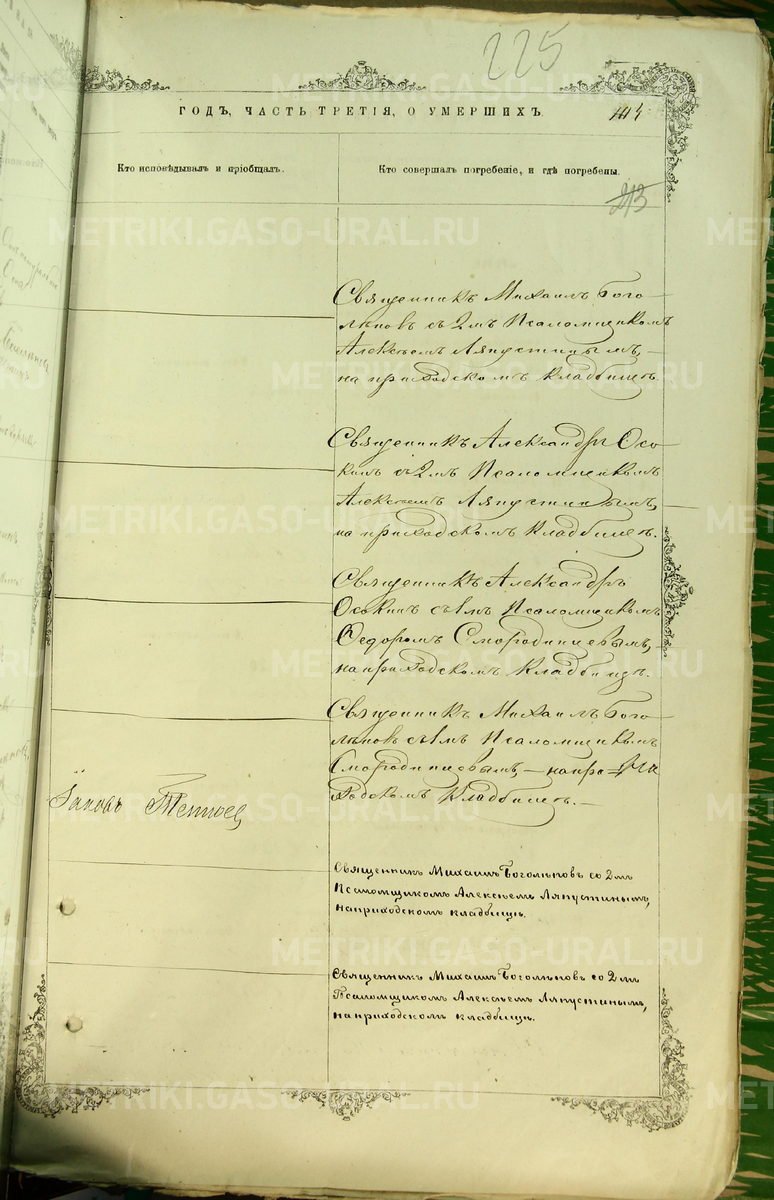 225
ГОДЪ, ЧАСТЬ ТРЕТІЯ, О УМЕРШИХЪ.
Кто исповѣдывалъ и пріобщалъ.
Кто совершалъ погребеніе, и гдѣ погребены.
213
Священникъ Михаилъ Бого-
лѣповъ съ 2мъ Псаломщикомъ
Алексѣемъ Ляпустинымъ,
на приходскомъ кладбищѣ.
Священникъ Александръ Осо-
кинъ съ 2мъ Псаломщикомъ
Алексѣемъ Ляпустинымъ,
на приходскомъ кладбищѣ.
Священникъ Александръ
Осокинъ съ 1мъ Псаломщикомъ
Ѳедоромъ Смородинцевымъ,
на приходскомъ кладбищѣ.
Священникъ Михаилъ Бого-
лѣповъ съ 1мъ Псаломщикомъ
Смородинцевымъ, – на при-
ходскомъ кладбищѣ. –
Священникъ Михаилъ Боголѣповъ со 2мъ
Псаломщикомъ Алексѣемъ Ляпустинымъ,
на приходскомъ кладбищѣ.
Священникъ Михаилъ Боголѣповъ со 2мъ
Псаломщикомъ Алексѣемъ Ляпустинымъ,
на приходскомъ кладбищѣ.
METRIKI.GASO-URAL.RU